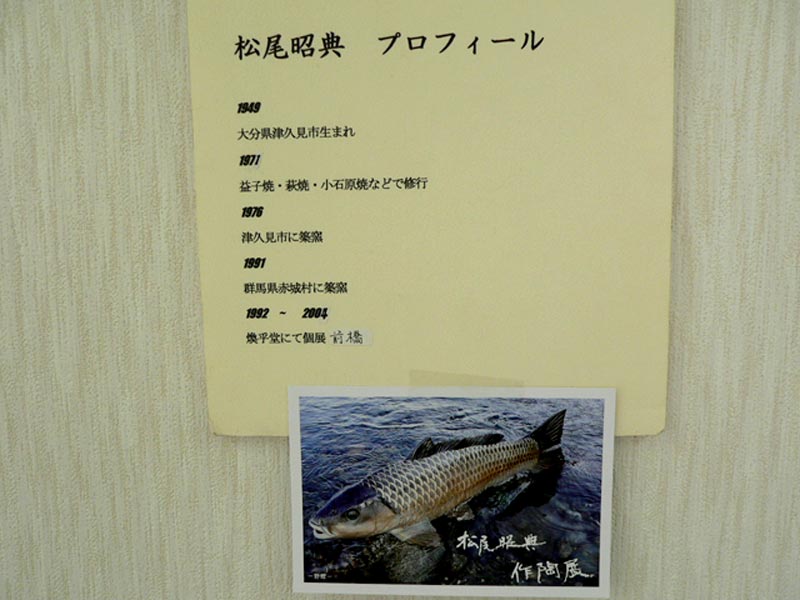 松尾昭典　プロフィール
1949
大分県津久見市生まれ
1971
益子焼・萩焼・小石原焼などで修行
1976
津久見市に築窯
1991
群馬県赤城村に築窯
1992　～　2004
煥乎堂にて個展 前橋
松尾昭典
作陶展